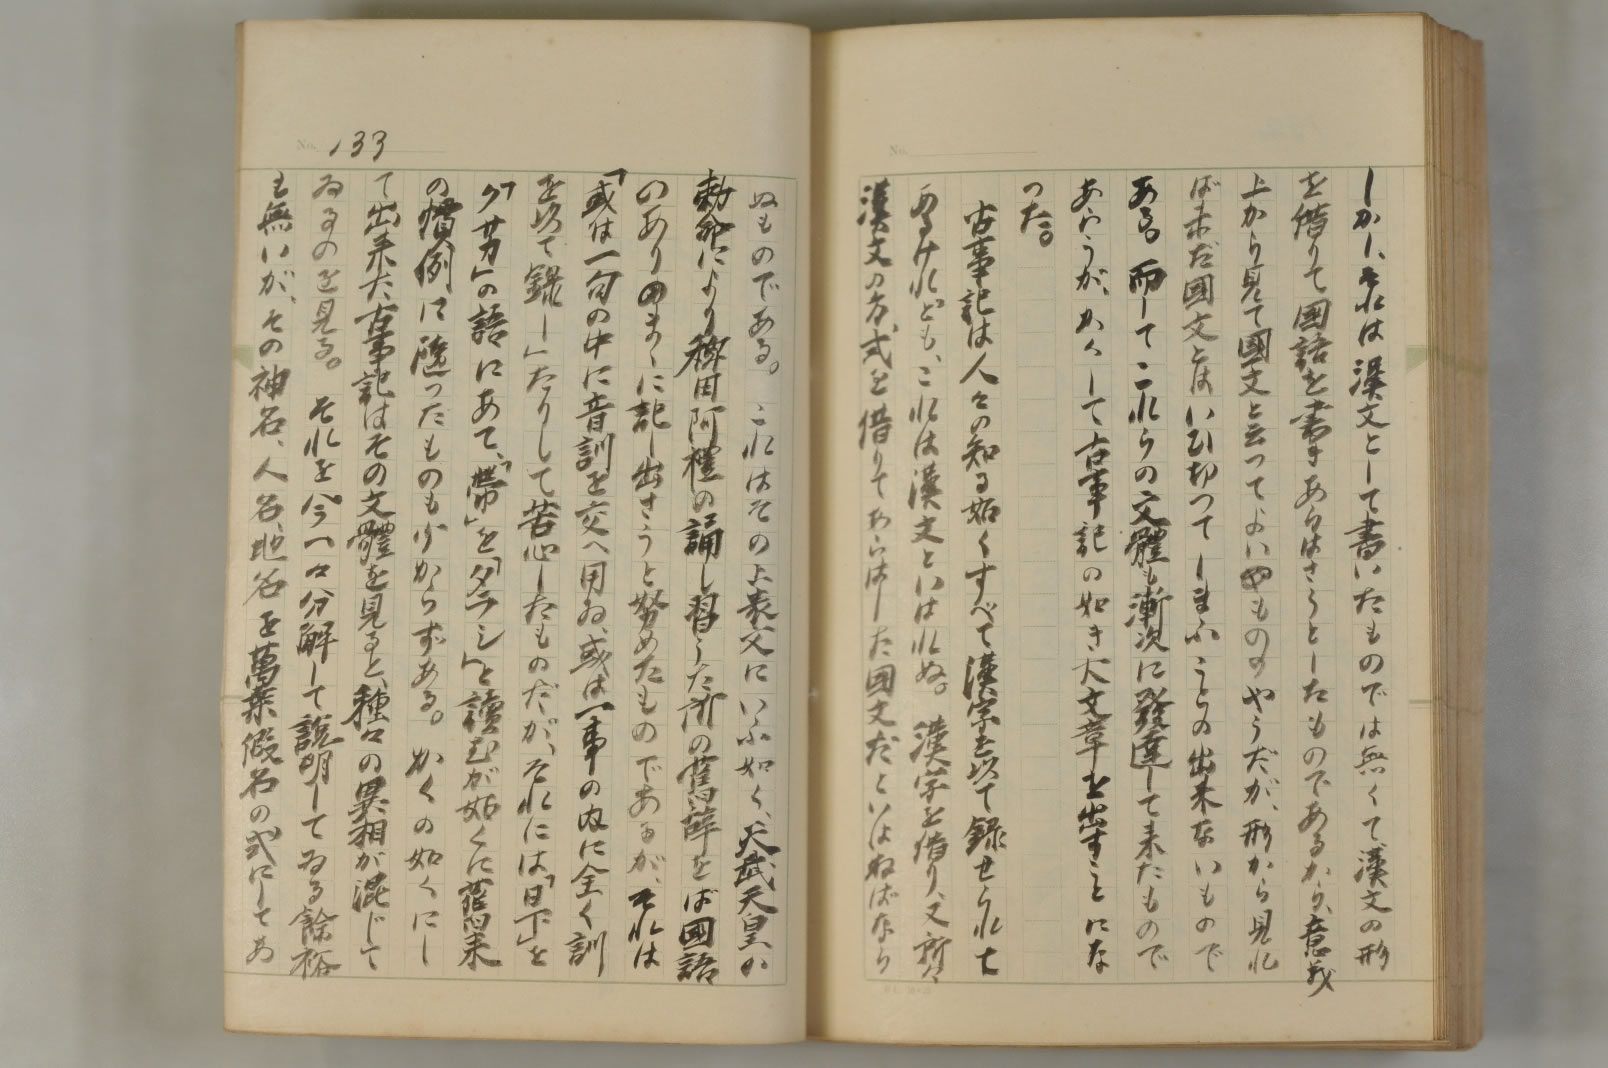 No.
しかし、それは漢文として書いたものでは無くて、漢文の形
を借りて國語を書きあらはさうとしたものであるから、意義
上から見て國文と云つてよいやものゝやうだが、形から見れ
ば未だ國文とはいひ切つてしまふことの出来ないもので
ある。而してこれらの文體も漸次に發達して来たもので
あらうが、かくして古事記の如き大文章を出すことにな
つた。
古事記は人々の知る如くすべて漢字を以て録せられて
あるけれども、これは漢文とはいはれぬ。漢字を借り、又所々
漢文の方式を借りてあらはした國文だといはねばなら
No. 133
ぬものである。これはその上表文にいふ如く、天武天皇が
勅命により稗田阿禮の誦し習うた所の舊辞をば國語
のありのまゝに記し出さうと努めたものであるが、それは
「或は一句の中に音訓を交へ用ゐ、或は一事の内に全く訓
を以て録し」たりして苦心したものだが、それには「日下」を
「クサカ」の語にあて、「帶」を「タラシ」と讀むが如くに舊来
の慣例に隨つたものも少からずある。かくの如くにし
て出来た古事記はその文體を見ると、種々の異相が混じて
ゐるのを見る。それを今一々分解して説明してゐる餘裕
も無いが、その神名、人名、地名を萬葉假名の式にしてあ